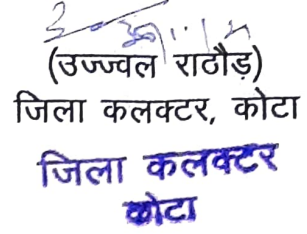 (उज्ज्वल राठौड़)
जिला कलक्टर, कोटा
जिला कलक्टर
कोटा